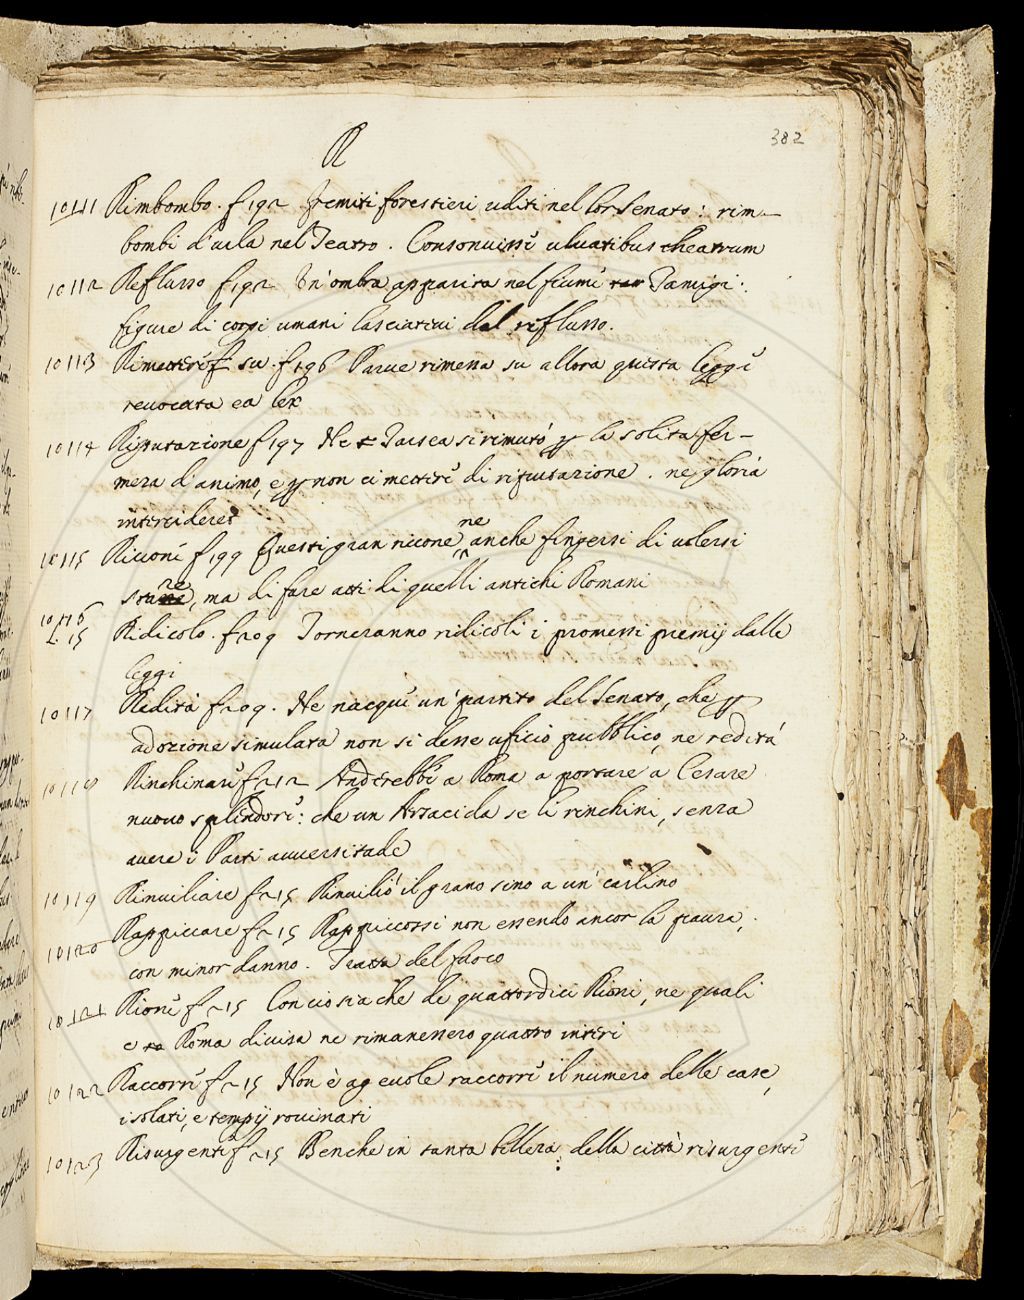 R
382
10111 Rimbombo. f 192 Fremiti forestieri uditi nel lor Senato: rim-
bombi d'urla nel Teatro. Consonuisse ululatibus theatrum
10112 Reflusso f 192 Un'ombra apparita nel fiume Tamigi:
figure di corpi umani lasciativi dal reflusso.
10113 Rimettere su. f 196 Parve rimessa su allora questa legge
revocata ea lex
10114 Riputazione f 197 Ne Tarsea si rimutò la solita fer-
mezza d'animo, e non ci mettere di riputazione. ne gloria
intercideret
10115 Riccone f 199 Questi gran riccone anche fingersi di volersi
ne
stare, ma di fare atti di quelli antichi Romani
10116
L. 15 Ridicolo. f 209 Torneranno ridicoli i promessi premij dalle
leggi
10117 Redità f 209. Ne nacque un partito del Senato, che
adozione simulata non si desse uficio pubblico, ne redità
10118 Rinchinare f 212 Andrebbe a Roma a portare a Cesare
nuovo splendore: che un Arsacida se li rinchini, senza
avere i Parti avversitade
10119 Rinviliare f 215 Rinviliò il grano sino a un carlino
10120 Rappiccare f 215 Rappiccossi non essendo ancor la paura,
con minor danno. Tratta del fuoco
10121 Rione f 215 Conciosia che di quattordici Rioni, ne quali
e Roma divisa ne rimanessero quattro interi
10122 Raccorre f 215 Non è agevole raccorre il numero delle case,
isolati, e tempij rovinati
10123 Risurgente f 215 Benche in tanta bellezza della città risurgente